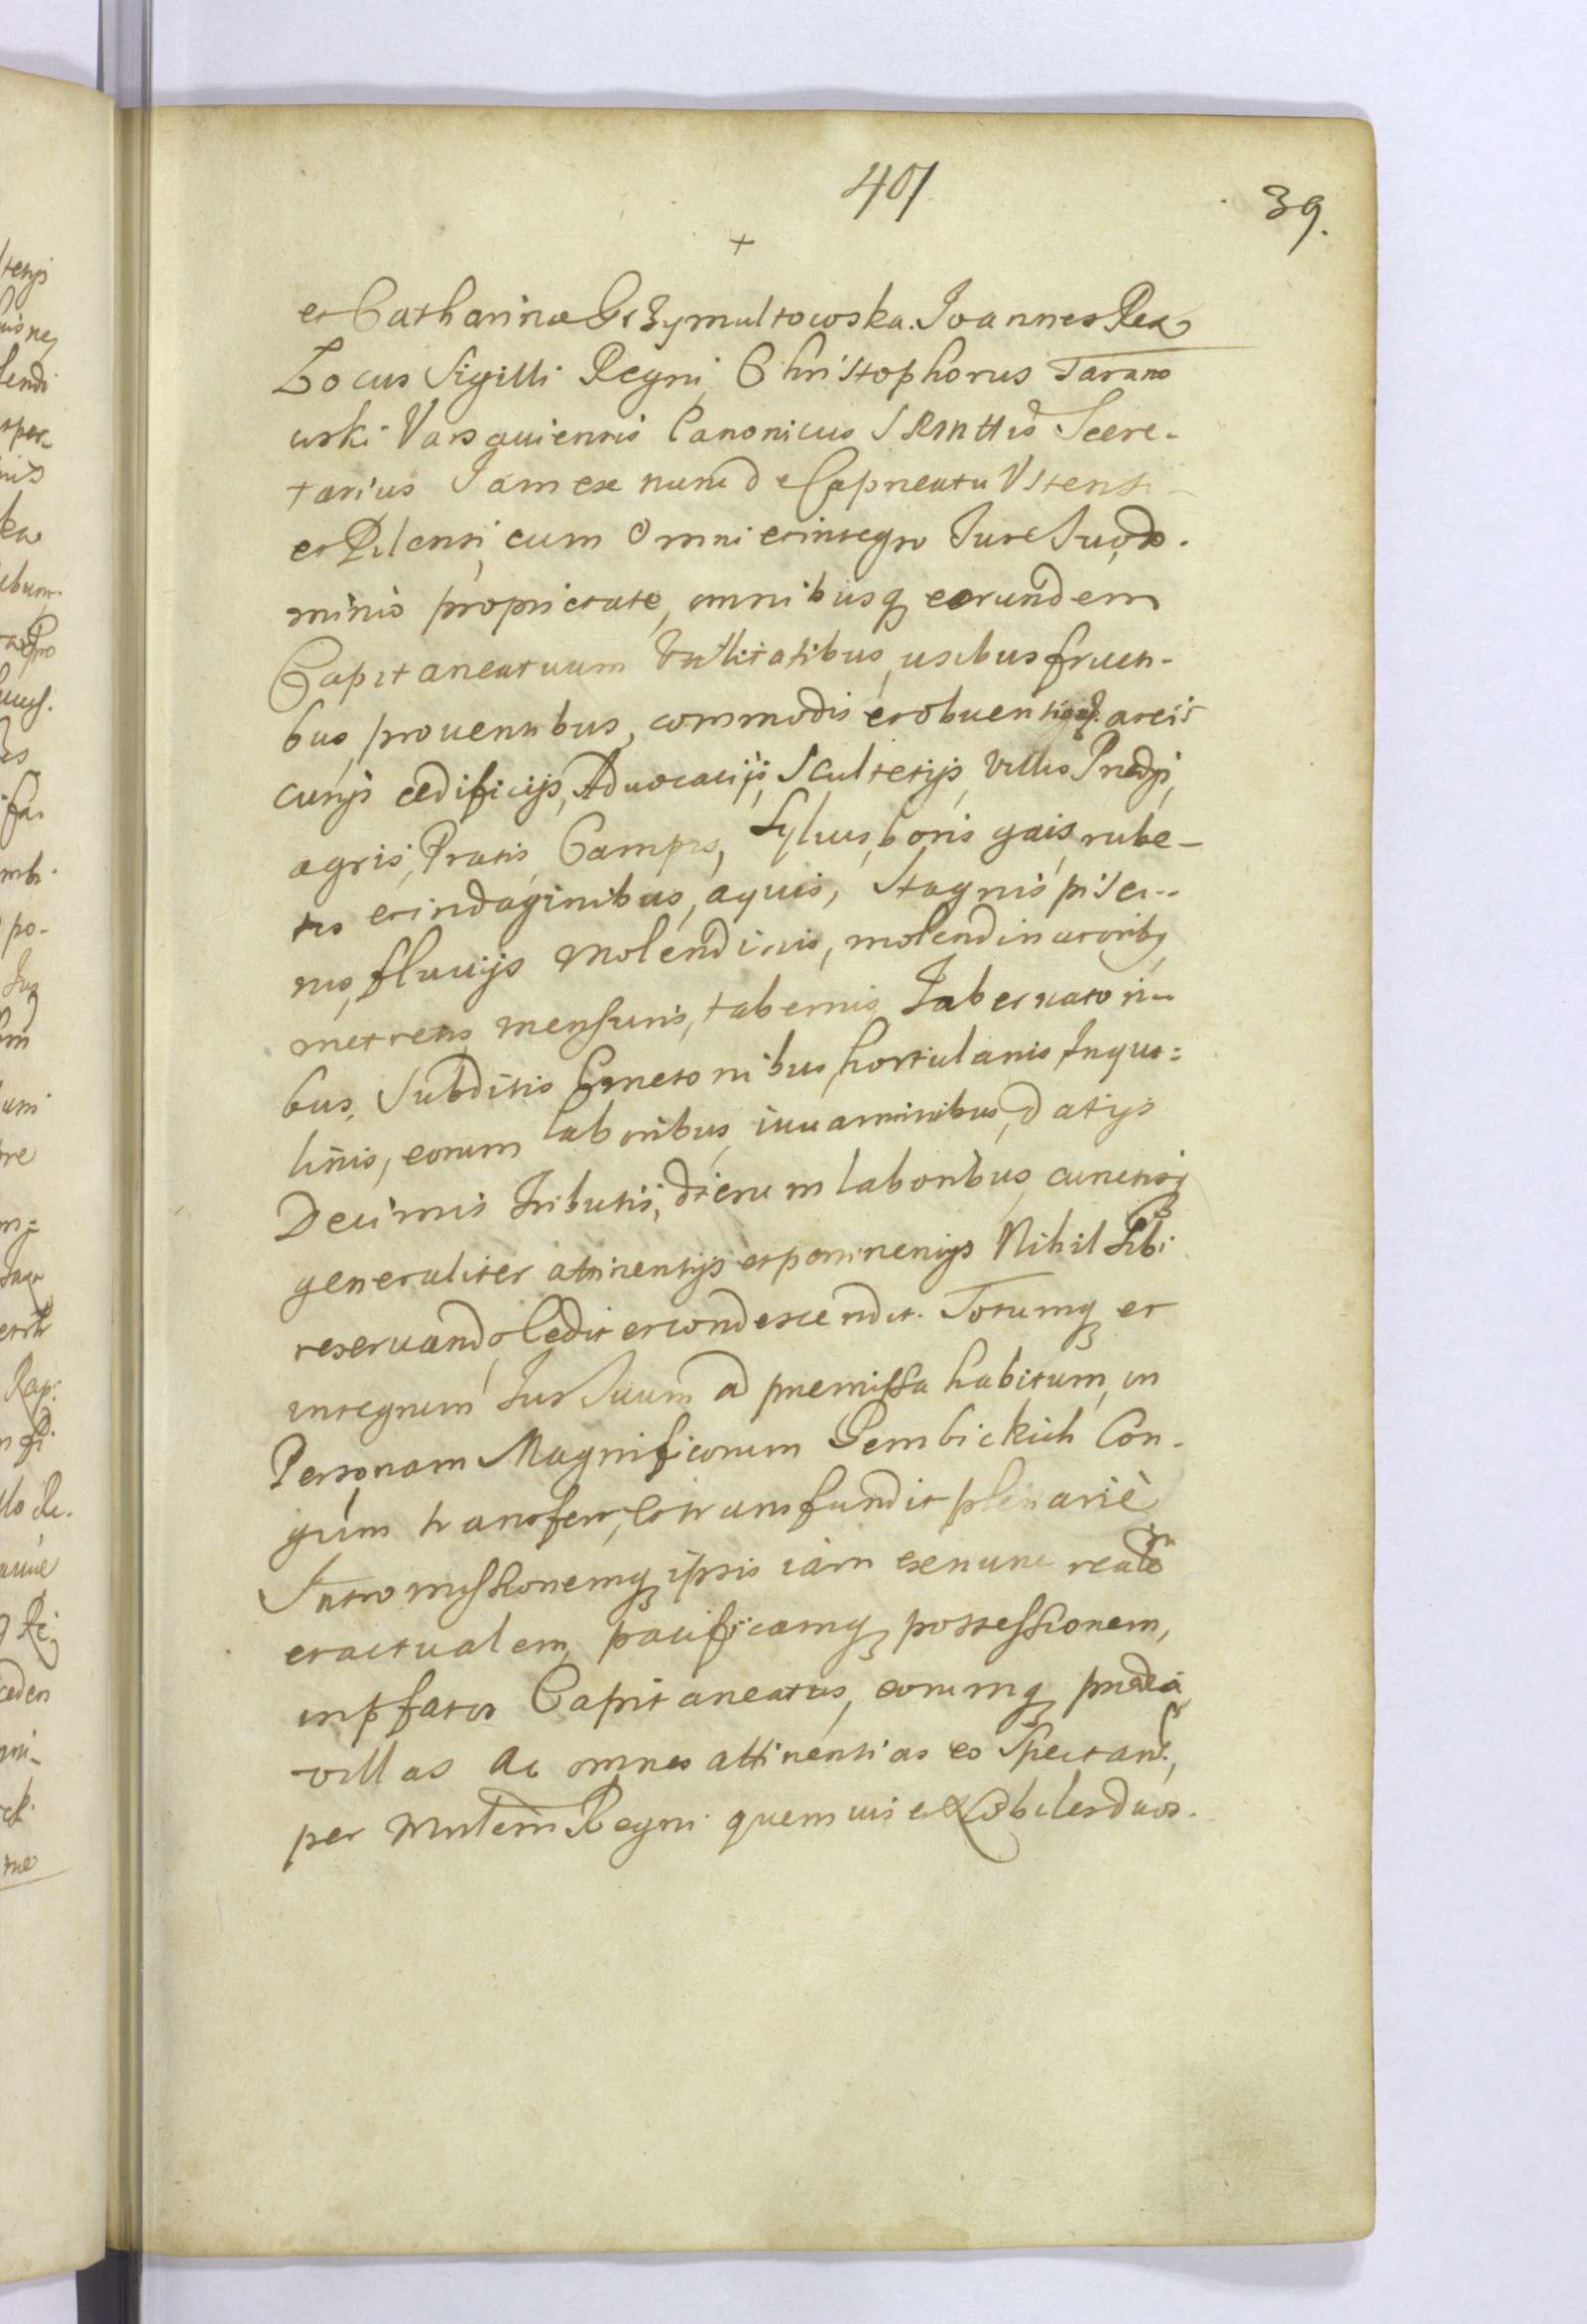 401
39.
+
et Catharinæ Grzymultowska. Joannes Rex
Locus Sigilli Regni Christophorus Tarano
wski Varsauiensis Canonicus SRMttis Secre-
tarius Jam ex nunc de Capneatu Vstensi
et Pilensi, cum omni et integro Jure Suo, do-
minio proprietate, omnibusq eorundem
Capitaneatuum Vtilitatibus, usibus fructi-
bus, prouentibus, commodis et obuentioq. areis
curijs ædificijs, Aduocatijs, Scultetijs, Villis Predijs,
agris, Pratis, Campis, Syluis, boris gais, rube-
tis et indaginibus, aquis, Stagnis, pisci-
nis, fluuijs Molendinis, molendinatoribq
metretis, mensuris, tabernis Tabernatori-
bus, Subditis Cmetonibus, hortulanis Inqui-
linis, eorum laboribus, iuuaminibus, datijs
Decimis Tributis, dierum laboribus, cunctisq
generaliter attinentijs et pertinentijs Nihil Sibi
reseruando Cedit et condescendit. Totumq et
integrum Jus Suum ad premissa habitum, in
Personam Magnificorum Gembickich Con-
gum transfert, et transfundit plenariè
Intromissionemq ipsis iam ex nunc realem
et actualem, pacificamq possessionem,
in pfatos Capitaneatus, eorumq predia
villas Ac omnes attinentias eo Spectan.,
per Mnlem Regni quemuis et Nobiles duos.